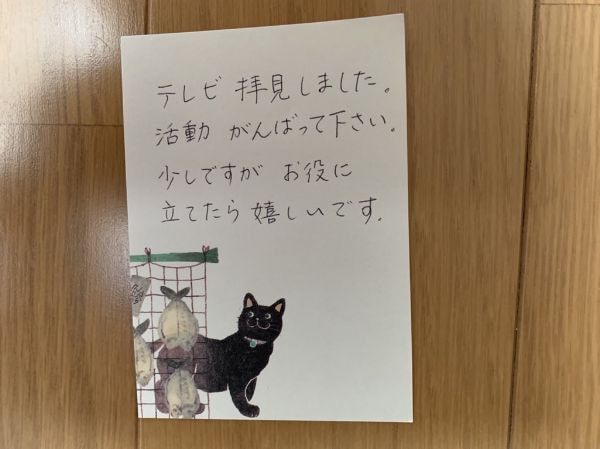 テレビ 拝見しました。
活動 がんばって下さい。
少しですが お役に
立てたら嬉しいです。